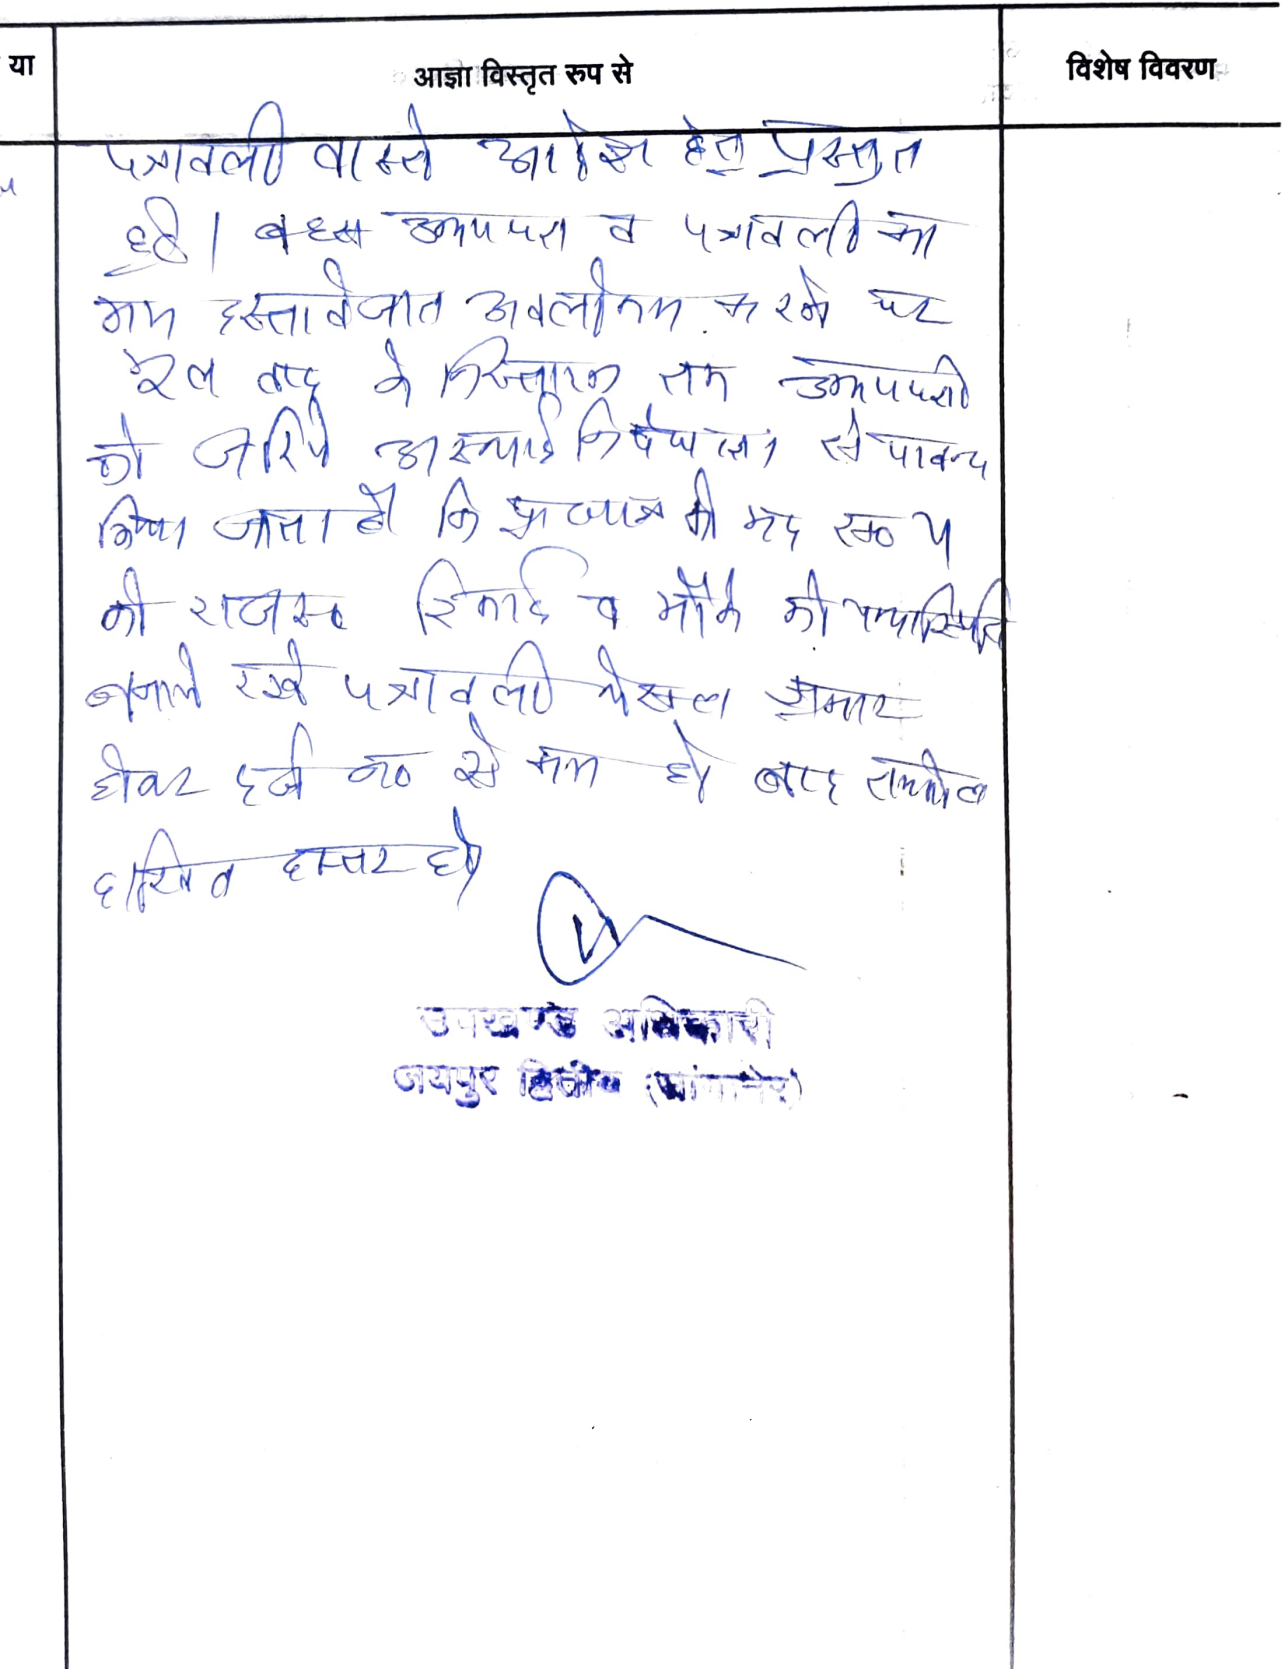 या
आज्ञा विस्तृत रुप से
विशेष विवरण
पत्रावली वास्ते आदेश हेतु प्रस्तुत
हुई। बहस उभयपक्ष व पत्रावली का
मय दस्तावेजात अवलोकन करने पर
मूल वाद के निस्तारण तक उभयपक्षों
को जरिये अस्थाई निषेधाज्ञा से पाबन्द
किया जाता है कि की मद
को राजस्व रिकार्ड व मौके की यथास्थिति
बनाये रखे पत्रावली फैसल शुमार
होकर दर्ज न० से कम हो बाद तकमील
दाखिल दफ्तर हो
उपखण्ड अधिकारी
जयपुर द्वितीय (सांगानेर)